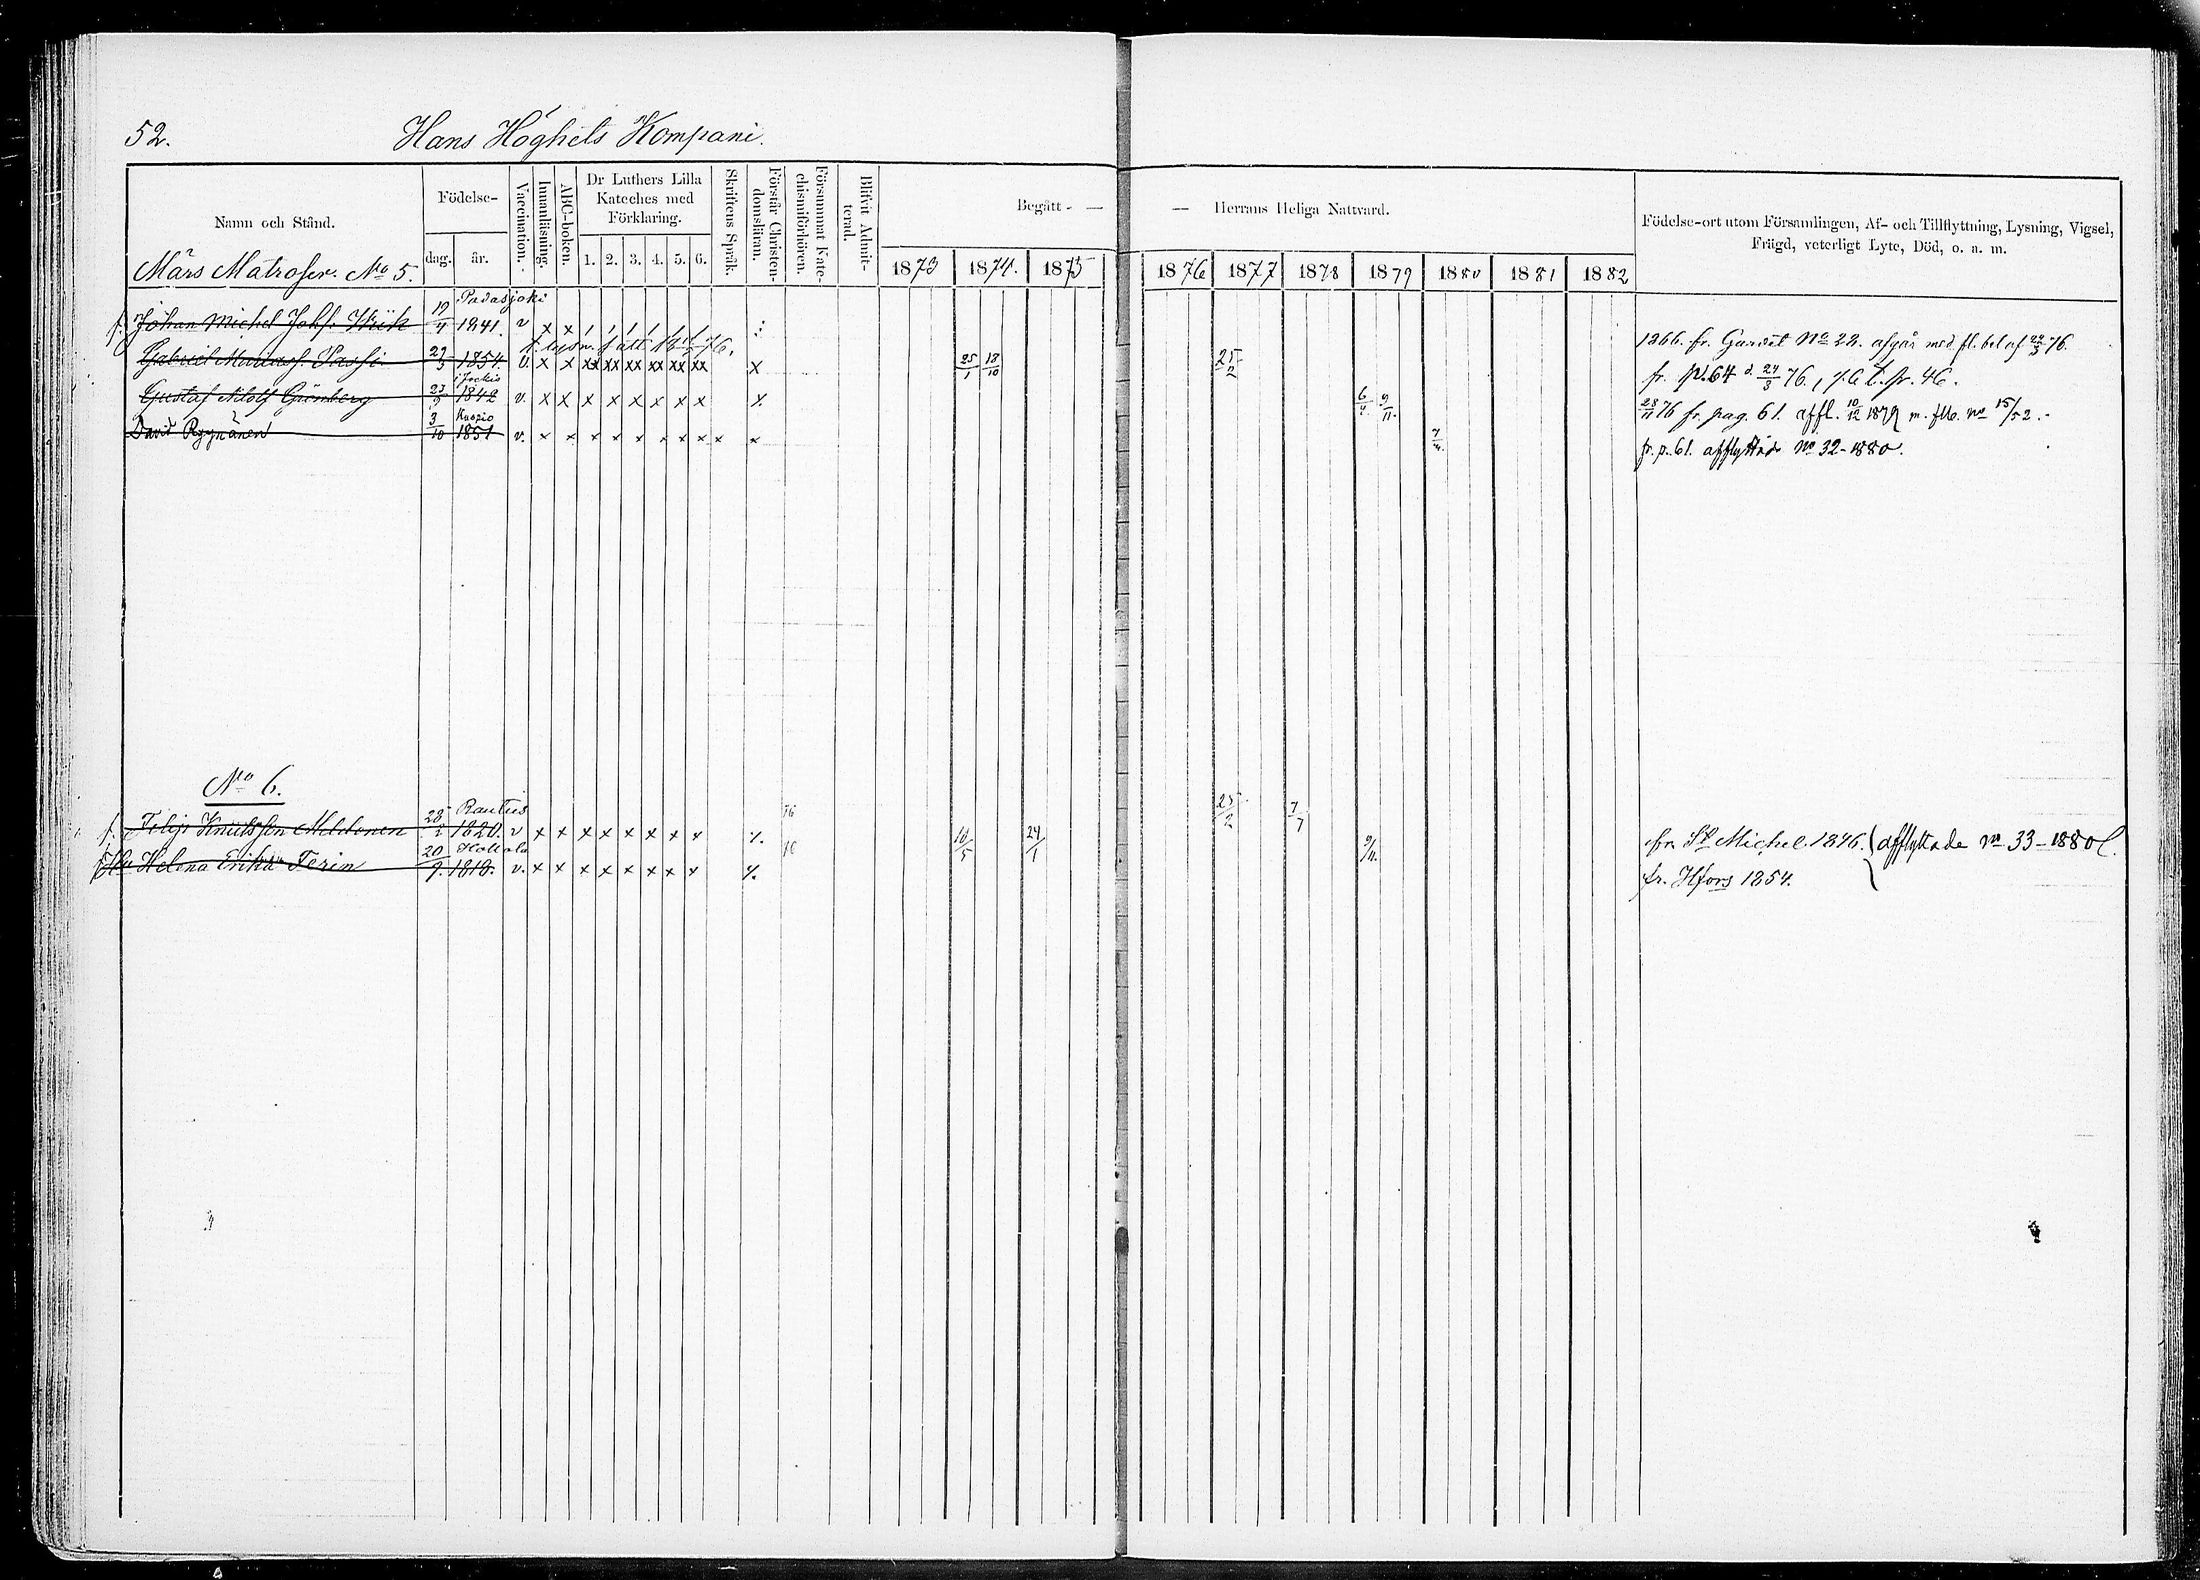 52. Hans Höghets Kompani.
Namn och Stånd.
Födelse-
dag. år.
Vaccination.
Innanläsning.
ABC-boken.
Dr Luthers Lilla
Kateches med
Förklaring.
1. 2. 3. 4. 5. 6.
Skriftens Språk.
Förstår Christen-
domsläran.
Försummat Kate-
chismiförhören.
Blifvit Admit-
terad.
Begått - — — Herrans Heliga Nattvard.
1873 1874. 1875 1876 1877 1878 1879 1880 1881 1882
Födelse-ort utom Församlingen, Af- och Tillflyttning, Lysning, Vigsel,
Frägd, veterligt Lyte, Död, o. a. m.
Märs Matroser. No 5.
Padasjoki
f. Johan Michel Johs. Wiik 19/4 1841. v x x 1866. fr. Gardet No 28. afgår med fl. bet af 22/3 76.
1. lysn. f. att
Gabriel 23/3 1854. v. x x xx xx xx xx xx xx x 25/1 18/10 25/2 fr. p. 64 d. 24/3 76.
Jockis
Gustaf Adolf Grönberg 1842 v. x x x x x x x x 6/4. 9/11. 28/11 76 fr. pag. 61. affl. 10/12 1879 m. flb. No 15/52.
Kuopio
David Ryynänen 3/10 1851 v. x x x x x x x x x x 7/4. fr. p. 61. afflyttade No 32-1880.
No 6.
Rautus
f. Filip Knutsson 28/2 1820. v x x x x x x x x 10/5 24/1 25/2 7/7 9/11. fr. St Michel. 1846. afflyttade No 33-1880
Hollola
Hu Helena Erika Ferin 20/9. 1818. v. x x x x x x x x fr. Hfors 1854.